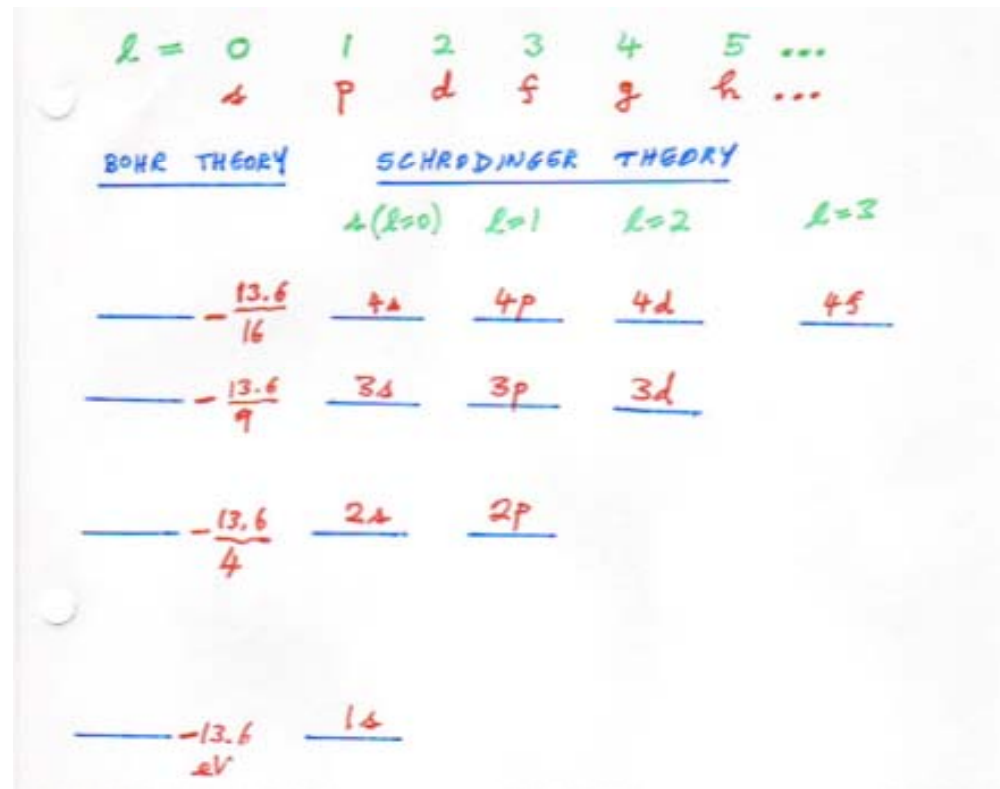 l = 0 1 2 3 4 5 ...
s p d f g h ...
BOHR THEORY SCHRODINGER THEORY
s(l=0) l=1 l=2 l=3
-13.6/16 4s 4p 4d 4f
-13.6/9 3s 3p 3d
-13.6/4 2s 2p
-13.6 1s
eV